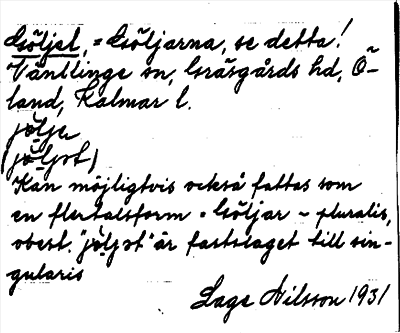 Göljel, = Göljarna, se detta!
Ventlinge sn, Gräsgårds hd, Ö-
land, Kalmar l.
jölje
(jöljet)
Kan möjligtvis också fattas som
en flertalsform = Göljar - pluralis,
obest. "jöljet" är fastslaget till sin-
gularis
Lage Nilsson 1931